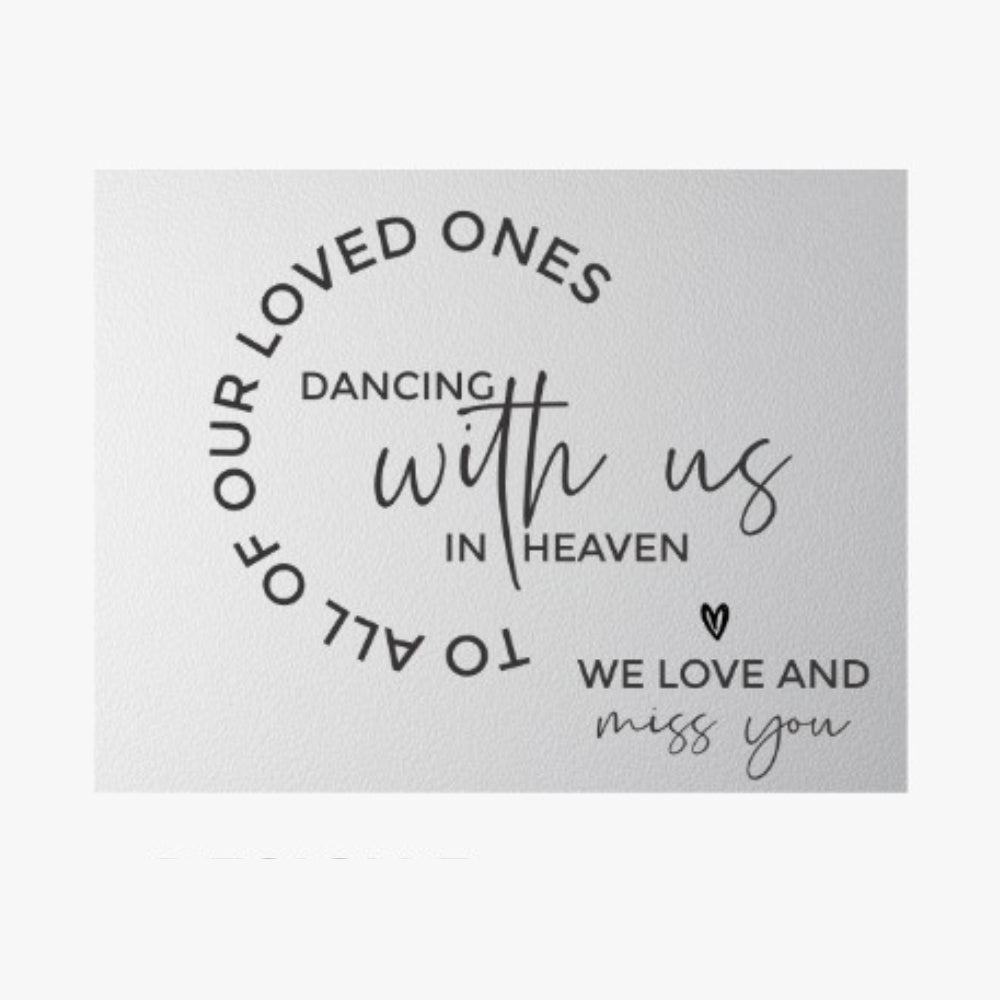 TO ALL OF OUR LOVED ONES
DANCING
with us
IN HEAVEN
WE LOVE AND
miss you